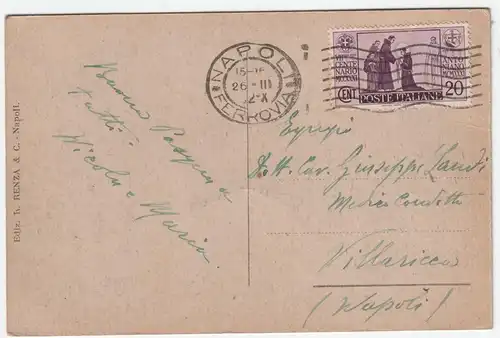 Ediz. R. RENZA & C. - Napoli.
Buona Pasqua a
tutti
Nicola e Maria
NAPOLI
15-16
26-III
FERROVIA
CENT
POSTE ITALIANE
20
Egregio
Dott. Cav. Giuseppe Landi
Medico Condotto
Villaricca
(Napoli)